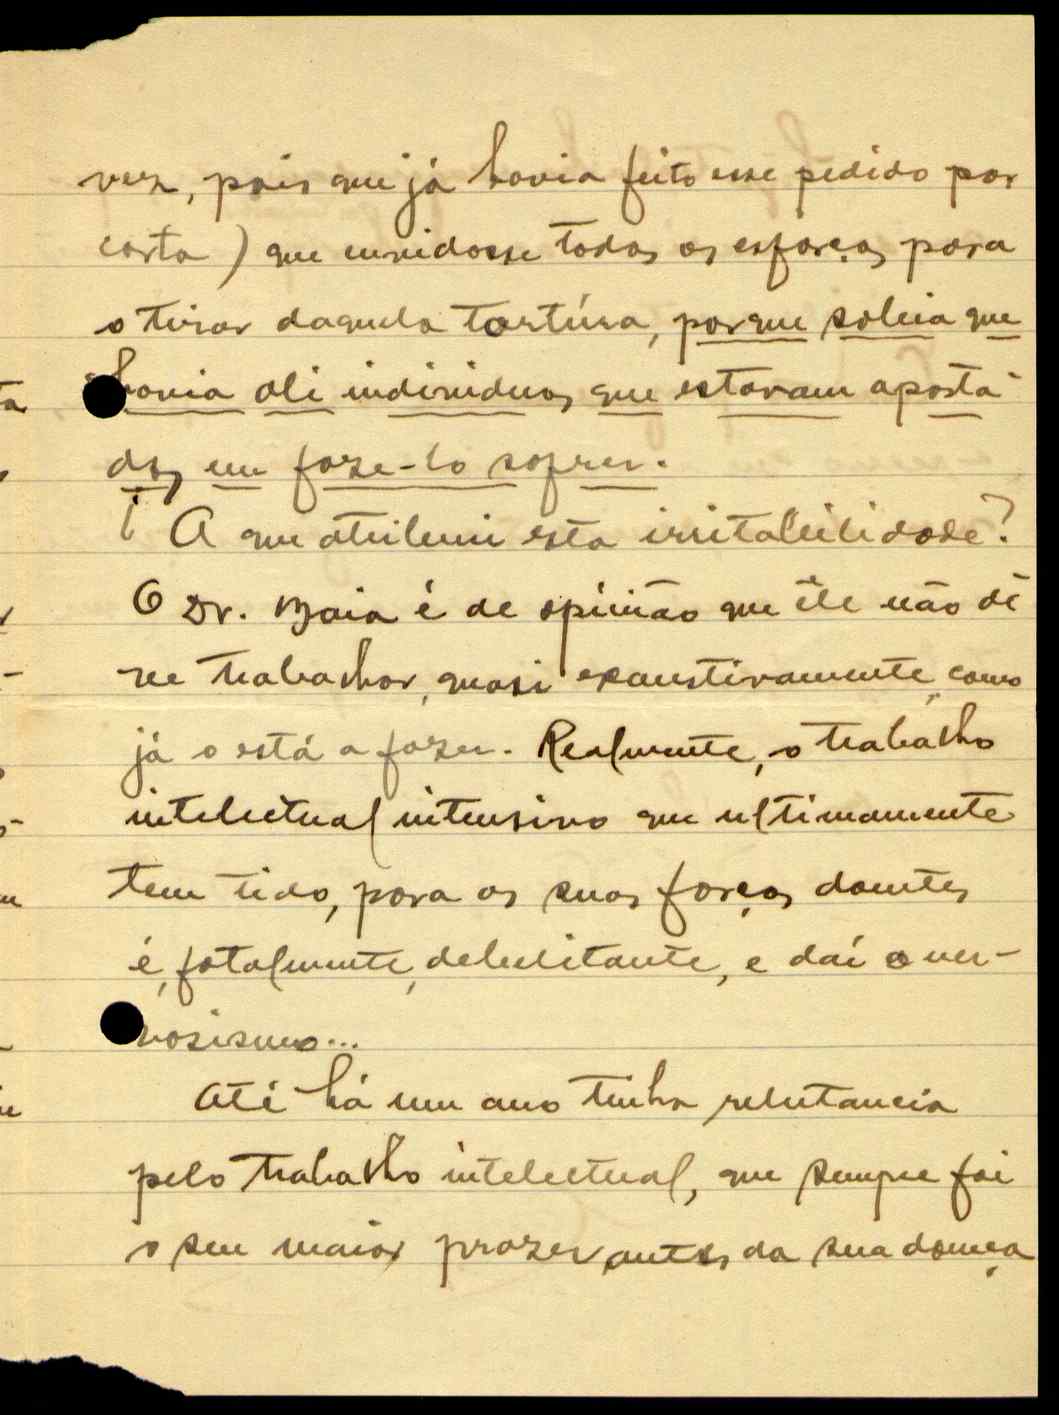 vez, pois que já havia feito esse pedido por
carta) que envidasse todos os esforços para
o tirar daquela tortúra, porque sabia que
havia ali individuos que estavam aposta-
dos em faze-lo sofrer.
¿ A que atribuui esta irritabilidade?
O Dr. Maia é de opinião que êle não dê-
ve trabalhar, quasi exaustivamente, como
já o está a fazer. Realmente, o trabalho
intelectual intensivo que ultimamente
tem tido, para as suas forças doentes
é, fatalmente, debilitante, e daí o ner-
vosismo...
Até há um ano tinha relutancia
pelo trabalho intelectual, que sempre foi
o seu maior prazer, antes da sua doença